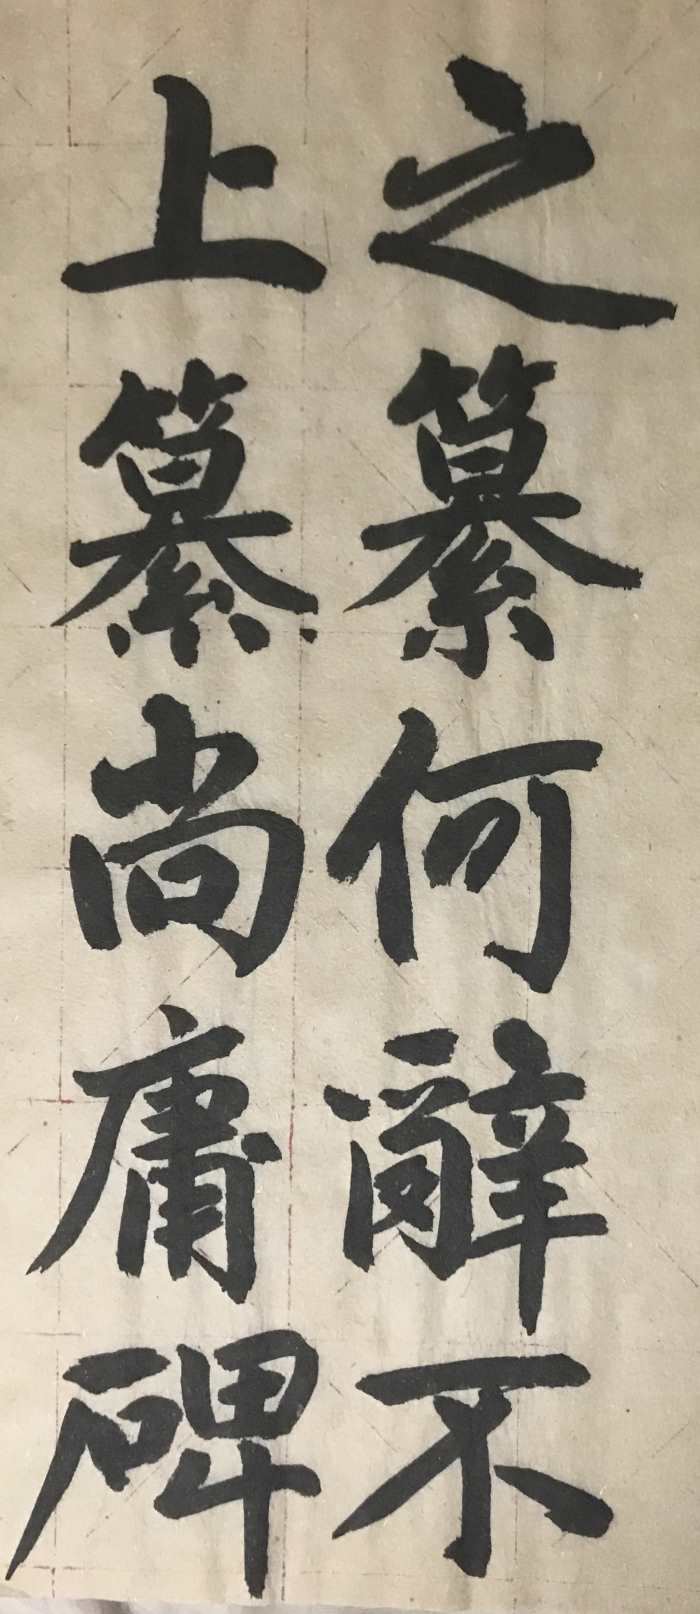 之纂何辭不
上纂尚庸碑